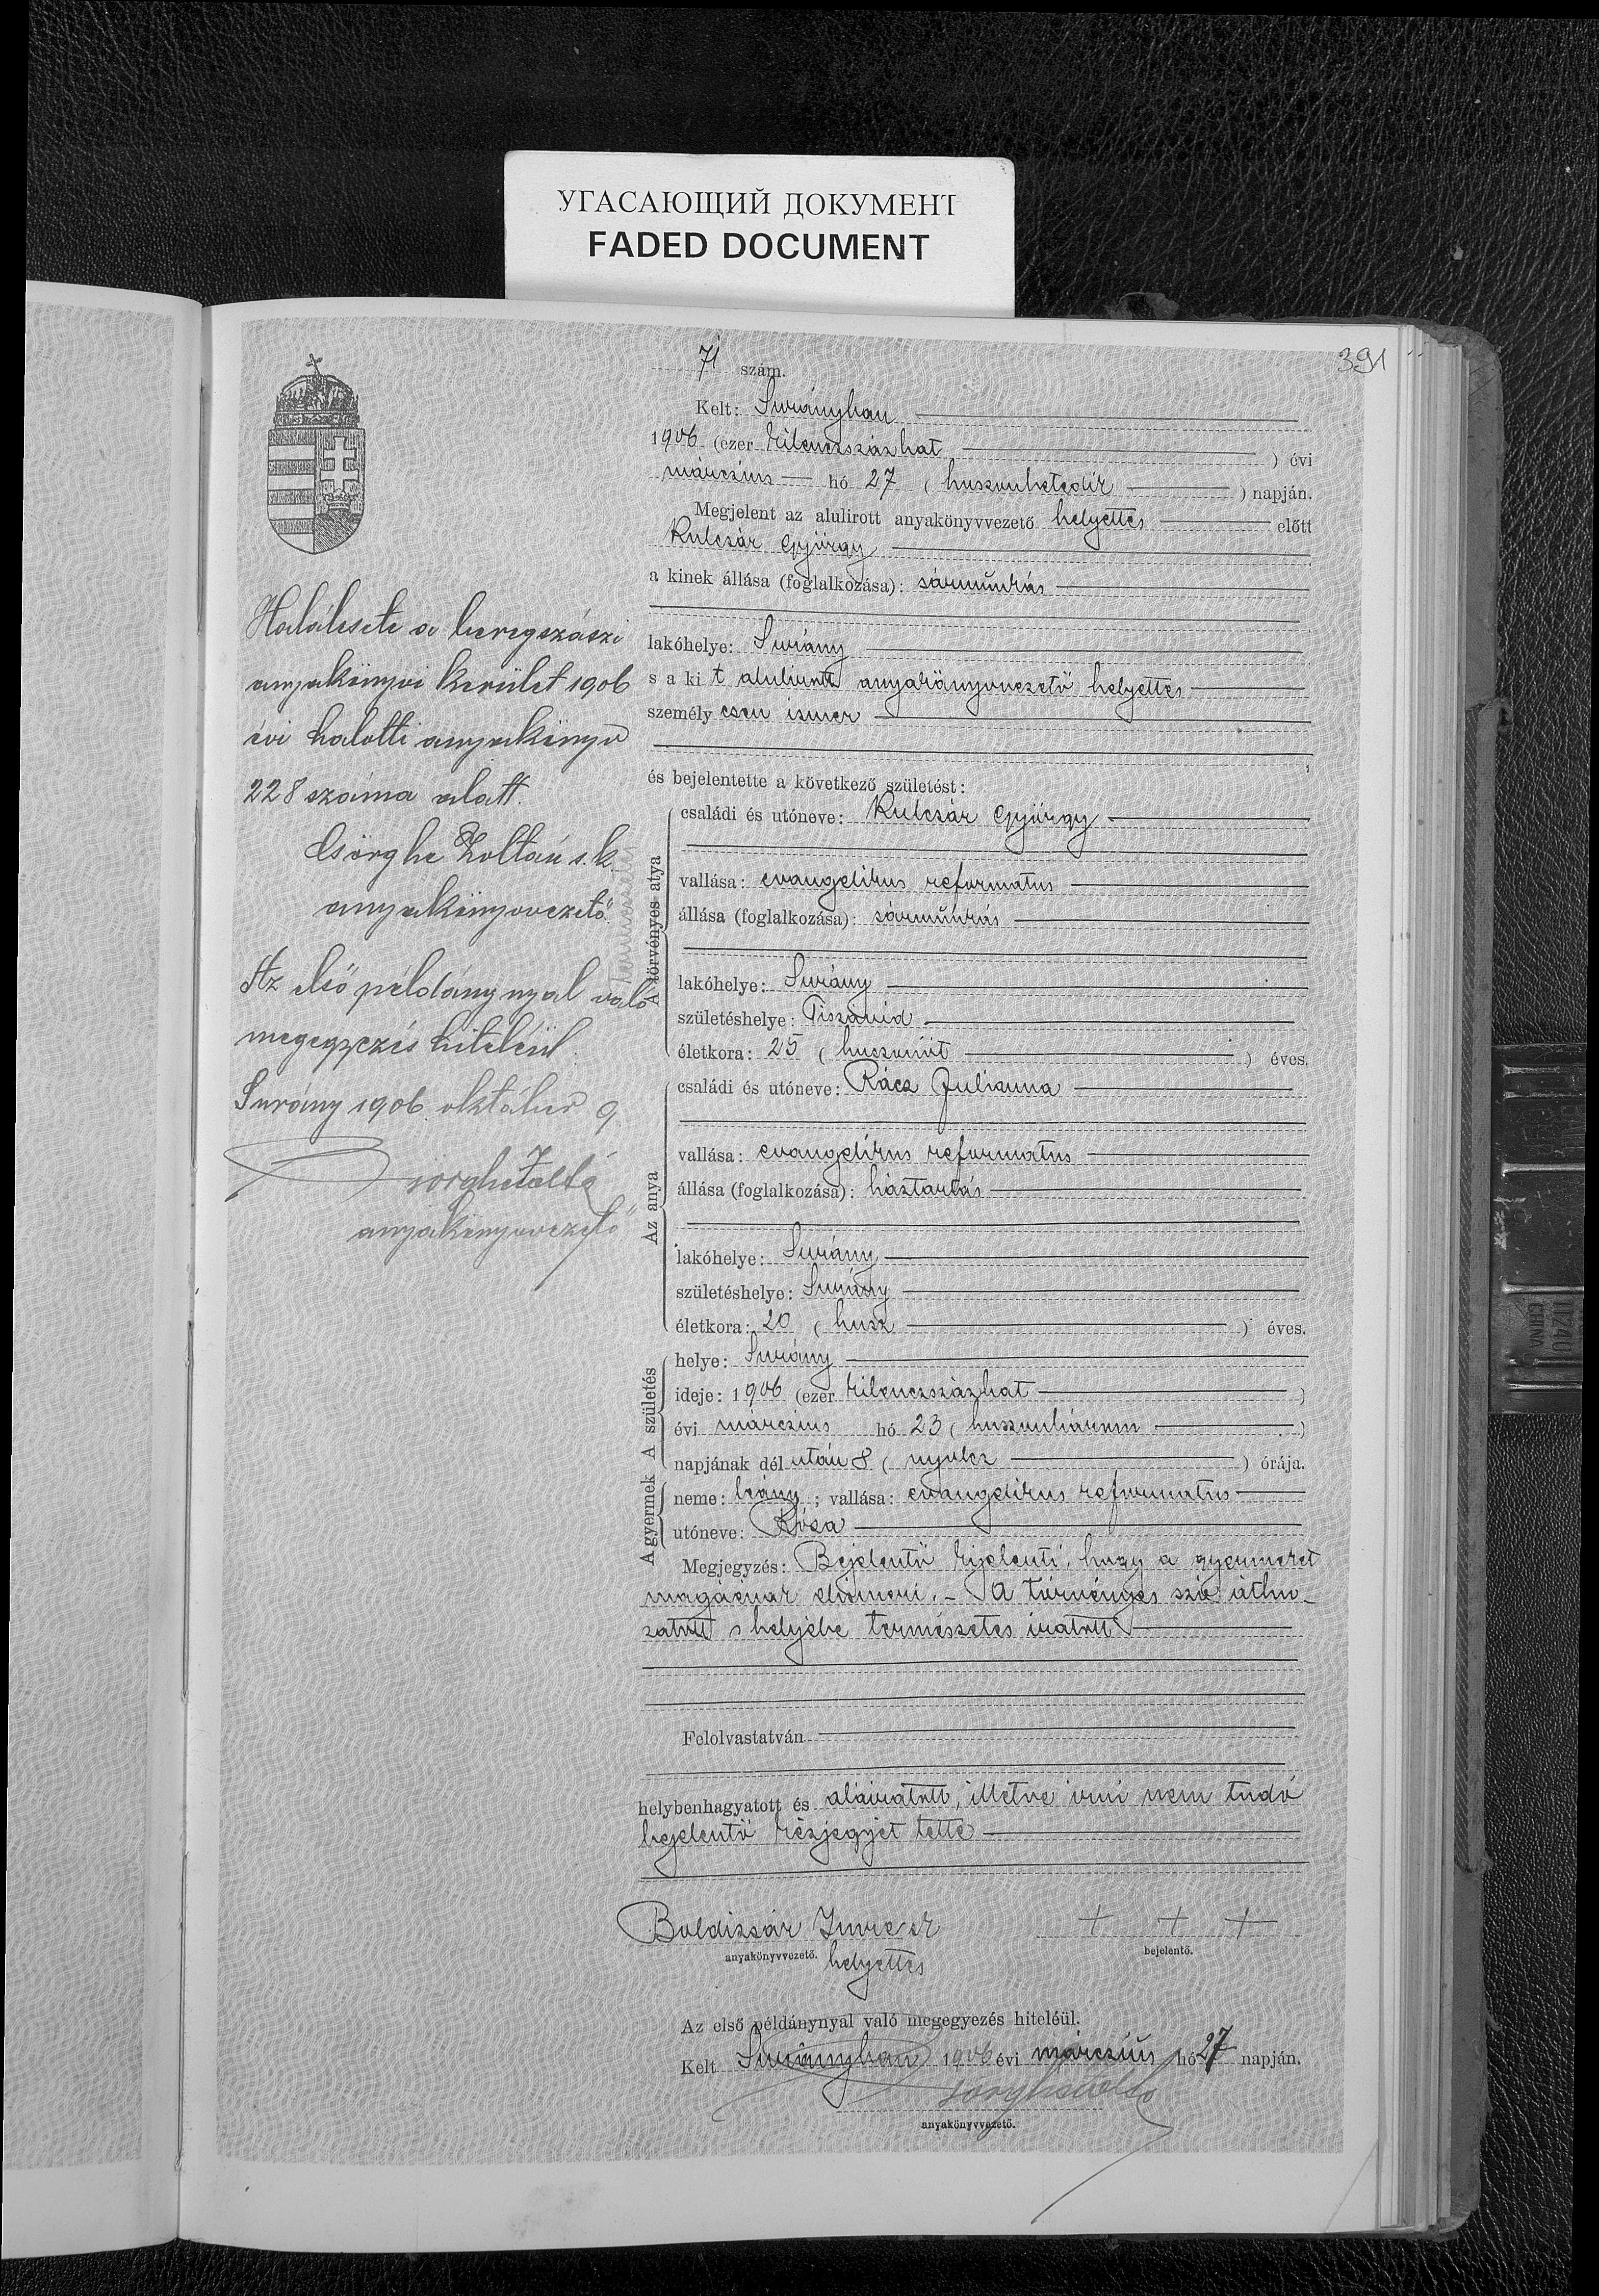 УГАСАЮЩИЙ ДОКУМЕНТ
FADED DOCUMENT
391
71 szám.
Kelt: Surányban
1906 (ezer kilenczszázhat ) évi
márczius hó 27 ( huszonhetedik ) napján.
Megjelent az alulirott anyakönyvvezető helyettes előtt
Kulcsár György
a kinek állása (foglalkozása): sármunkás
lakóhelye: Surány
s a kit alulirott anyakönyvvezető helyettes
személyesen ismer
és bejelentette a következő születést:
A törvényes atya
természetes
családi és utóneve: Kulcsár György
vallása: evangelikus reformatus
állása (foglalkozása): sármunkás
lakóhelye: Surány
születéshelye: Tiszavid
életkora: 25 ( huszonöt ) éves.
Az anya
családi és utóneve: Rácz Julianna
vallása: evangelikus reformatus
állása (foglalkozása): háztartás
lakóhelye: Surány
születéshelye: Surány
életkora: 20 ( husz ) éves.
A születés
helye: Surány
ideje: 1906 (ezer kilenczszázhat )
évi márczius hó 23 ( huszonhárom )
napjának dél után 8 ( nyolcz ) órája.
A gyermek
neme: leány ; vallása: evangelikus reformatus
utóneve: Róza
Megjegyzés: Bejelentő kijelenti, hogy a gyermeket
magáénak elismeri. – A törvényes szó áthu-
zatott s helyébe természetes iratott
Felolvastatván
helybenhagyatott és aláiratott, illetve irni nem tudó
bejelentő kézjegyét tette
Boldizsár Imre sk
+ + +
anyakönyvvezető. helyettes
bejelentő.
Az első példánynyal való megegyezés hiteléül.
Kelt Surányban 1906 évi márczius hó 27 napján.
Csorghe Zoltán
anyakönyvvezető.
Halálesete a beregszászi
anyakönyvi kerület 1906
évi halotti anyakönyv
228 száma alatt.
Csörghe Zoltán s.k.
anyakönyvvezető.
Az első példánynyal való
megegyezés hiteléül
Surány 1906 október 9.
Csorghe Zoltán
anyakönyvvezető